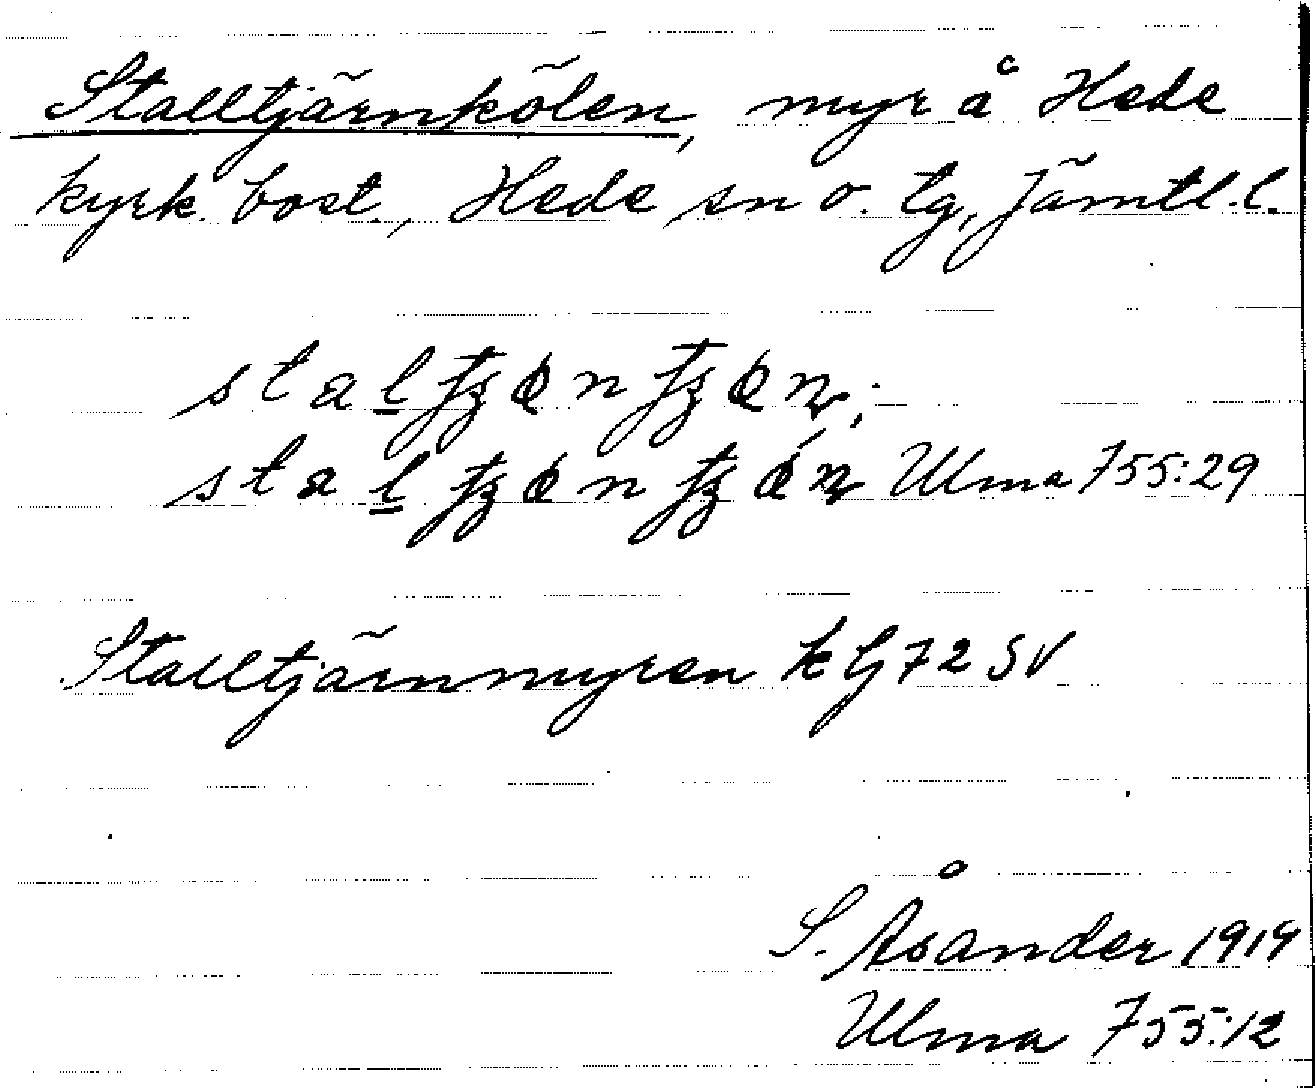 Stalltjärnkölen, myr å Hede
kyrk. bost., Hede sn o. tg, Jämtl. l.
Ulma 755:29
Stalltjärnmyren kG 72 SV
S. Åsander 1919
Ulma 755:12